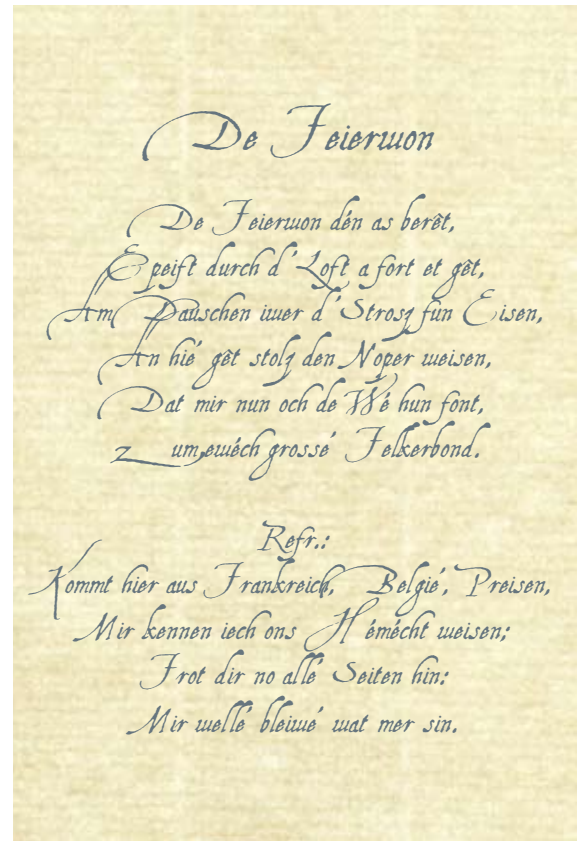 De Feierwon
De Feierwon dén as berêt,
E peift durch d' Loft a fort et gêt,
Am Dauschen iwer d' Strosz fun Eisen,
An hié gêt stolz den Noper weisen,
Dat mir nun och de Wé hun font,
Zum ewéch grossé Felkerbond.
Refr.:
Kommt hier aus Frankreich, Belgié, Preisen,
Mir kennen iech ons Hémécht weisen;
Frot dir no allé Seiten hin:
Mir wellé bleiwé wat mer sin.